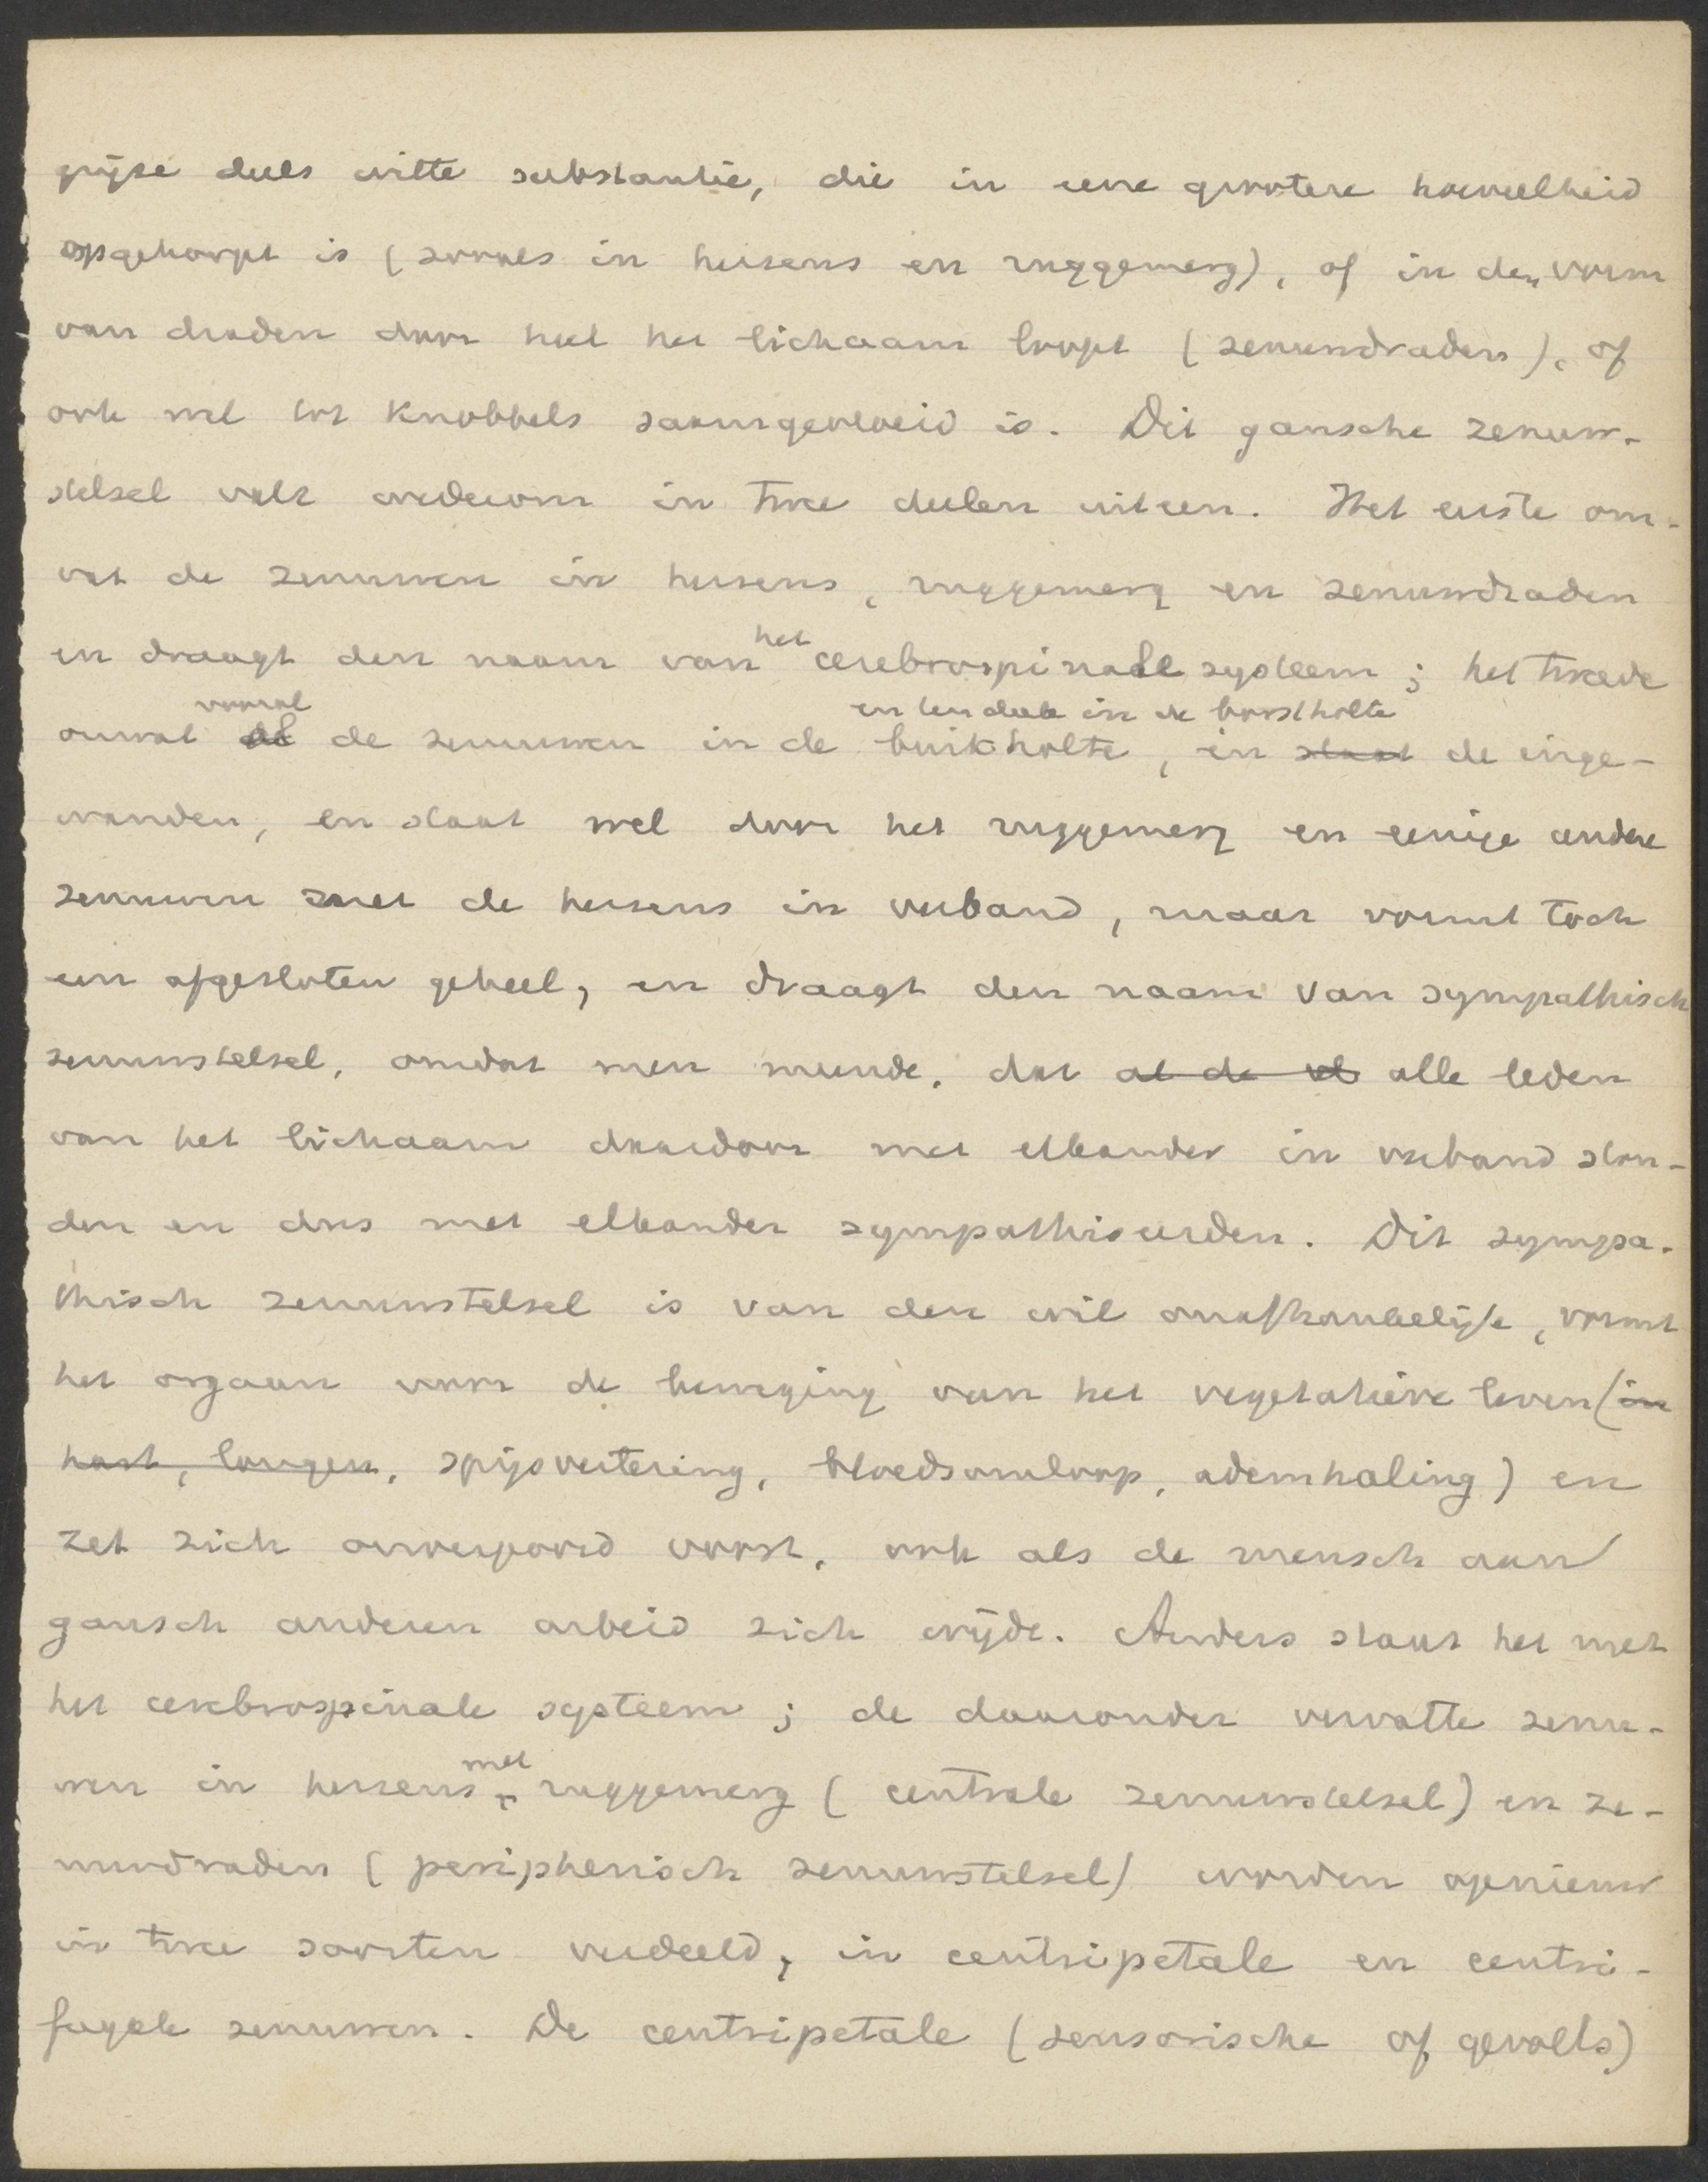 grijze deels witte substantie, die in eene grootere hoeveelheid
opgehoopt is (zooals in hersens en ruggemerg), of in den vorm
van draden door heel het lichaam loopt (zenuwdraden), of
ook wel tot knobbels saamgevloeid is. Dit gansche zenuw-
stelsel valt wederom in twee deelen uiteen. Het eerste om-
vat de zenuwen in hersens, ruggemerg en zenuwdraden
en draagt den naam van het cerebrospinale systeem; het tweede
vooral en ten deele in de borstholte
omvat de zenuwen in de buikholte, in staat de inge-
wanden, en staat wel door het ruggemerg en eenige andere
zenuwen met de hersens in verband, maar vormt toch
een afgesloten geheel, en draagt den naam van sympathisch
zenuwstelsel, omdat men meende, dat al de alle leden
van het lichaam daardoor met elkander in verband ston-
den en dus met elkander sympathiseerden. Dit sympa-
thisch zenuwstelsel is van den wil onafhankelijk, vormt
het orgaan voor de beweging van het vegetatieve leven (in
hart, longen, spijsvertering, bloedsomloop, ademhaling) en
zet zich onverpoosd voort, ook als de mensch aan
gansch anderen arbeid zich wijdt. Anders staat het met
het cerebrospinale systeem; de daaronder vervatte zenu-
wen in hersens met ruggemerg (centrale zenuwstelsel) en ze-
nuwdraden (peripherisch zenuwstelsel) worden opnieuw
in twee soorten verdeeld, in centripetale en centri-
fugale zenuwen. De centripetale (sensorische of gevoels)